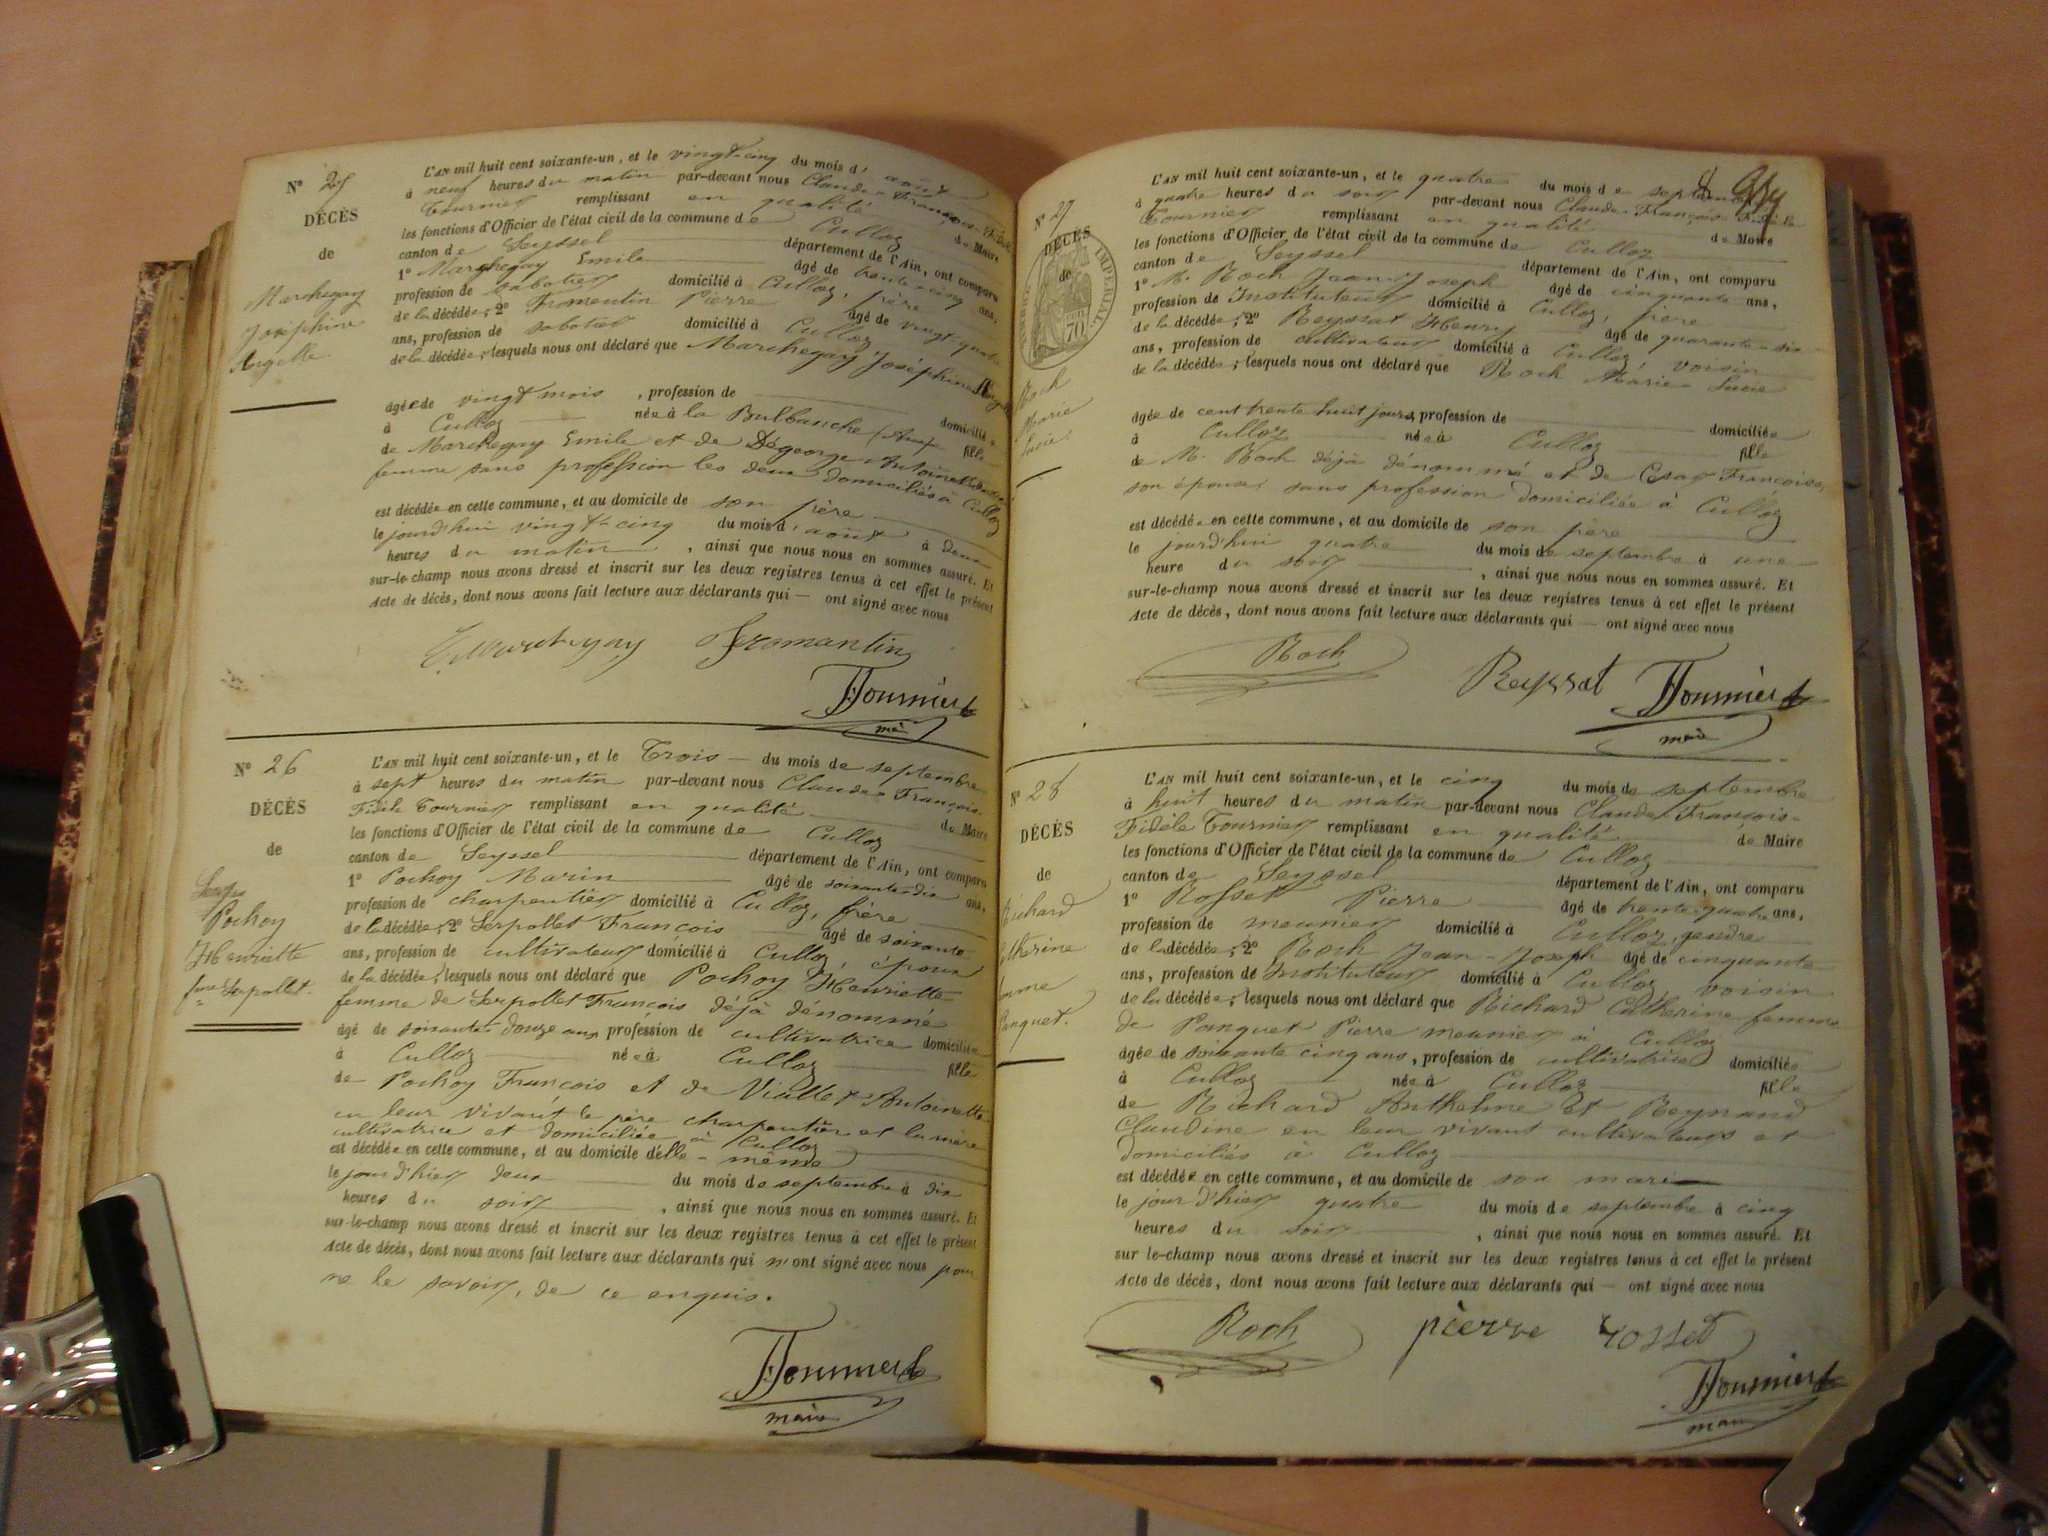 N° 25
DÉCÈS
de
Marchegay
Joséphine
Angelle
L'AN mil huit cent soixante-un, et le vingt-cinq du mois d'août
à neuf heures du matin par-devant nous Claude-François-Fidèle
Tournier remplissant en qualité de Maire
les fonctions d'Officier de l'état civil de la commune de Culloz
canton de Seyssel département de l'Ain, ont comparu
1° Marchegay Emile âgé de trente-cinq ans,
profession de sabotier domicilié à Culloz, père
de la décédée; 2° Fromentin Pierre âgé de vingt-quatre
ans, profession de sabotier domicilié à Culloz
de la décédée, lesquels nous ont déclaré que Marchegay Joséphine
âgée de vingt mois, profession de domiciliée
à Culloz née à la Bulbauche fille
de Marchegay Emile et de Dégeorge Antoinette
femme sans profession les deux domiciliés à Culloz
est décédée en cette commune, et au domicile de son père
le jourd'hui vingt-cinq du mois d'août à deux
heures du matin, ainsi que nous nous en sommes assuré. Et
sur-le-champ nous avons dressé et inscrit sur les deux registres tenus à cet effet le présent
Acte de décès, dont nous avons fait lecture aux déclarants qui — ont signé avec nous
E. Marchegay Fromantin
Tournier
N° 26
DÉCÈS
de
Pochoy
Henriette
fme Serpollet
L'AN mil huit cent soixante-un, et le Trois du mois de septembre
à sept heures du matin par-devant nous Claude-François-
Fidèle Tournier remplissant en qualité de Maire
les fonctions d'Officier de l'état civil de la commune de Culloz
canton de Seyssel département de l'Ain, ont comparu
1° Pochoy Marin âgé de soixante-dix ans,
profession de charpentier domicilié à Culloz, frère
de la décédée; 2° Serpollet François âgé de soixante
ans, profession de cultivateur domicilié à Culloz, époux
de la décédée, lesquels nous ont déclaré que Pochoy Henriette
femme de Serpollet François déjà dénommé
âgé de soixante-douze ans, profession de cultivatrice domiciliée
à Culloz née à Culloz fille
de Pochoy François et de Viallet Antoinette
en leur vivant le père charpentier et la mère
cultivatrice et domiciliée à Culloz
est décédée en cette commune, et au domicile d'elle-même
le jour d'hier deux du mois de septembre à dix
heures du soir, ainsi que nous nous en sommes assuré. Et
sur-le-champ nous avons dressé et inscrit sur les deux registres tenus à cet effet le présent
Acte de décès, dont nous avons fait lecture aux déclarants qui n'ont signé avec nous pour
ne le savoir, de ce enquis.
Tournier
maire
N° 27
DÉCÈS
de
IMPERIAL
70
Roch
Marie
Lucie
L'AN mil huit cent soixante-un, et le quatre du mois de septembre
à quatre heures du soir par-devant nous Claude-François-Fidèle
Tournier remplissant en qualité de Maire
les fonctions d'Officier de l'état civil de la commune de Culloz
canton de Seyssel département de l'Ain, ont comparu
1° M. Roch Jean-Joseph âgé de cinquante ans,
profession de Instituteur domicilié à Culloz, père
de la décédée; 2° Reyssat Henry âgé de quarante-six
ans, profession de cultivateur domicilié à Culloz, voisin
de la décédée, lesquels nous ont déclaré que Roch Marie Lucie
âgée de cent trente huit jours, profession de domiciliée
à Culloz née à Culloz fille
de M. Roch déjà dénommé et de Françoise,
son épouse, sans profession domiciliée à Culloz
est décédée en cette commune, et au domicile de son père
le jourd'hui quatre du mois de septembre à une
heure du soir, ainsi que nous nous en sommes assuré. Et
sur-le-champ nous avons dressé et inscrit sur les deux registres tenus à cet effet le présent
Acte de décès, dont nous avons fait lecture aux déclarants qui — ont signé avec nous
Roch Reyssat Tournier
maire
N° 28
DÉCÈS
de
Richard
Catherine
femme
Panquet.
L'AN mil huit cent soixante-un, et le cinq du mois de septembre
à huit heures du matin par-devant nous Claude-François-
Fidèle Tournier remplissant en qualité de Maire
les fonctions d'Officier de l'état civil de la commune de Culloz
canton de Seyssel département de l'Ain, ont comparu
1° Rosset Pierre âgé de trente-quatre ans,
profession de meunier domicilié à Culloz, gendre
de la décédée; 2° Roch Jean-Joseph âgé de cinquante
ans, profession de Instituteur domicilié à Culloz, voisin
de la décédée, lesquels nous ont déclaré que Richard Catherine femme
de Panquet Pierre meunier à Culloz
âgée de soixante cinq ans, profession de cultivatrice domiciliée
à Culloz née à Culloz fille
de Richard Anthelme et Reynaud
Claudine en leur vivant cultivateurs et
domiciliés à Culloz
est décédée en cette commune, et au domicile de son mari
le jour d'hier quatre du mois de septembre à cinq
heures du soir, ainsi que nous nous en sommes assuré. Et
sur le-champ nous avons dressé et inscrit sur les deux registres tenus à cet effet le présent
Acte de décès, dont nous avons fait lecture aux déclarants qui — ont signé avec nous
Roch pierre rosset
Tournier
maire